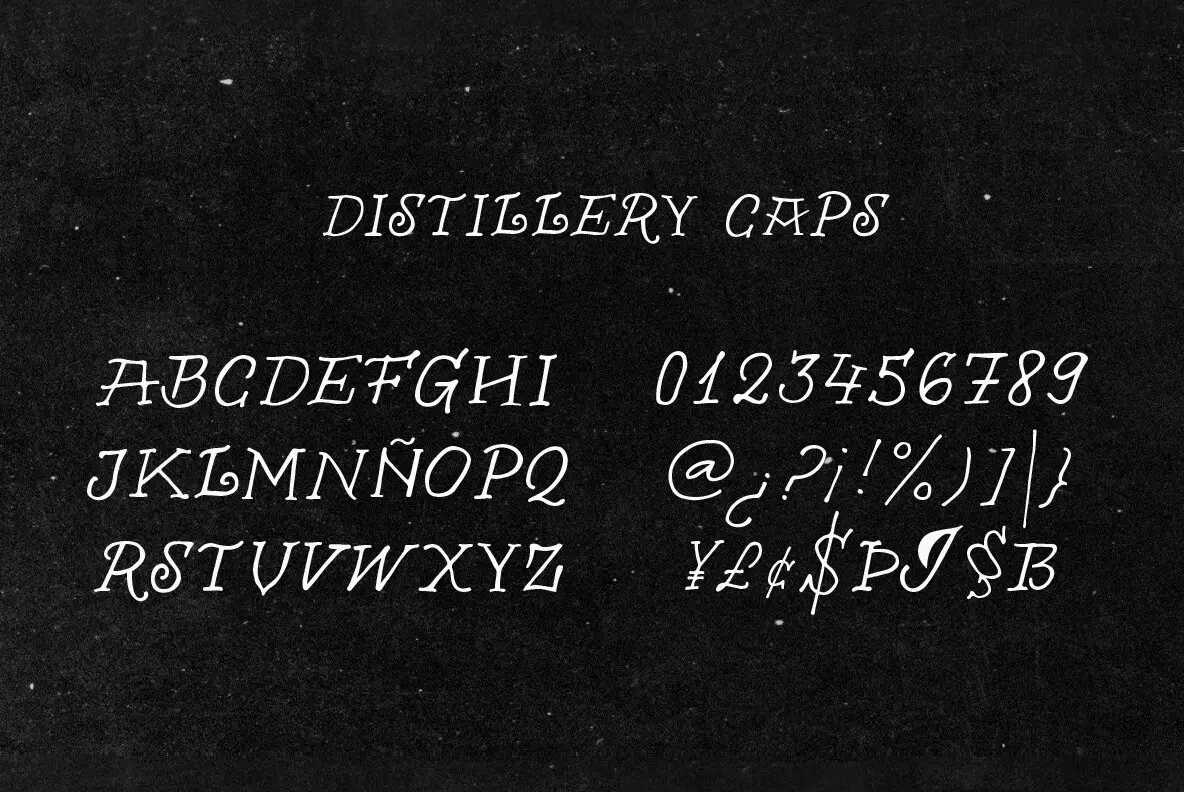 DISTILLERY CAPS
ABCDEFGHI
JKLMNÑOPQ
RSTUVWXYZ
0123456789
@¿?¡!%)]|}
¥£¢$ÞIŞB